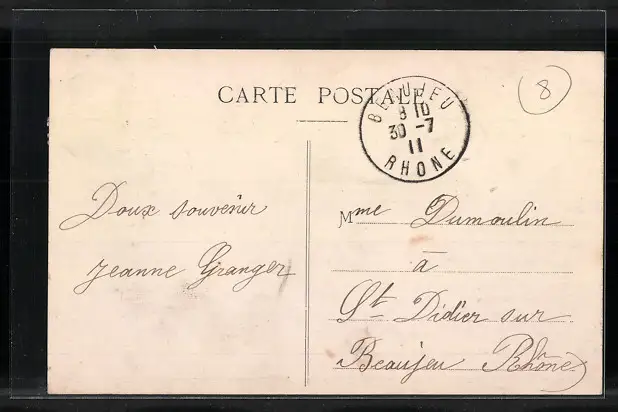 CARTE POSTALE
BEAUJEU
8 10
30 -7
11
RHONE
8
Doux souvenir
Jeanne Granger
Mme Dumoulin
à
St Didier sur
Beaujeu Rhône